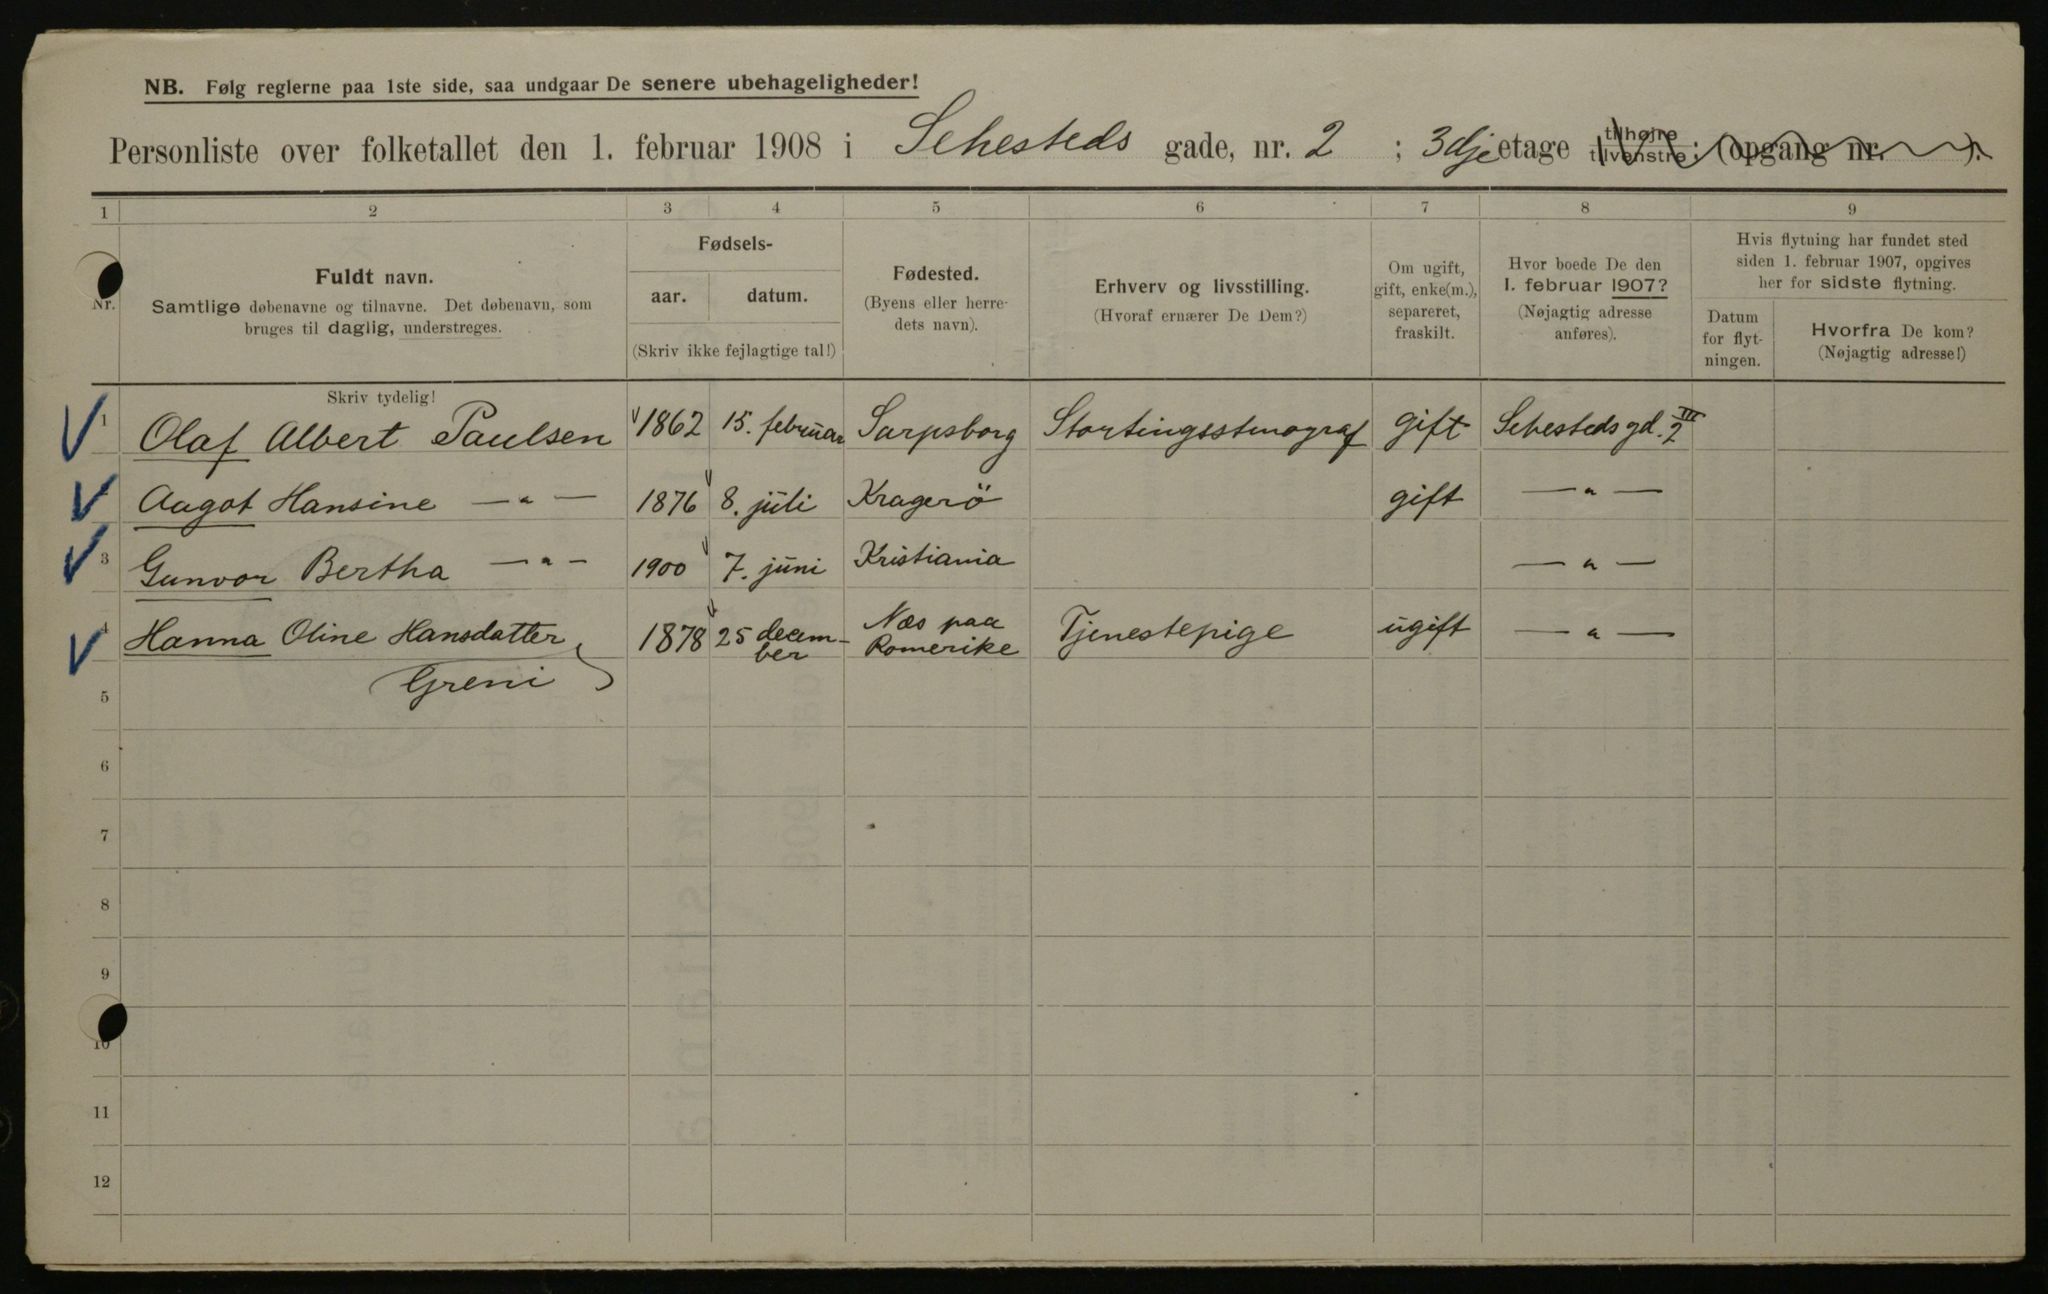 NB. Følg reglerne paa 1ste side, saa undgaar De senere ubehageligheder!
Personliste over folketallet den 1. februar 1908 i Sehesteds gade, nr. 2 ; 3dje etage tilhøjre tilvenstre ; (opgang nr. ).
1 2 3 4 5 6 7 8 9
Nr.
Fuldt navn.
Samtlige døbenavne og tilnavne. Det døbenavn, som
bruges til daglig, understreges.
Fødsels-
aar. datum.
(Skriv ikke fejlagtige tal!)
Fødested.
(Byens eller herre-
dets navn).
Erhverv og livsstilling.
(Hvoraf ernærer De Dem?)
Om ugift,
gift, enke(m.),
separeret,
fraskilt.
Hvor boede De den
1. februar 1907?
(Nøjagtig adresse
anføres).
Hvis flytning har fundet sted
siden 1. februar 1907, opgives
her for sidste flytning.
Datum
for flyt-
ningen.
Hvorfra De kom?
(Nøjagtig adresse!)
Skriv tydelig!
1 Olaf Albert Paulsen 1862 15. februar Sarpsborg Stortingsstenograf gift Sehestedsgd. 2 III
Aagot Hansine — " — 1876 8. juli Kragerö gift — " —
3 Gunvor Bertha — " — 1900 7. juni Kristiania — " —
4 Hanna Oline Hansdatter 1878 25 decem- Næs paa Tjenestepige ugift — " —
ber Romerike
Greni
5
6
7
8
9
10
11
12